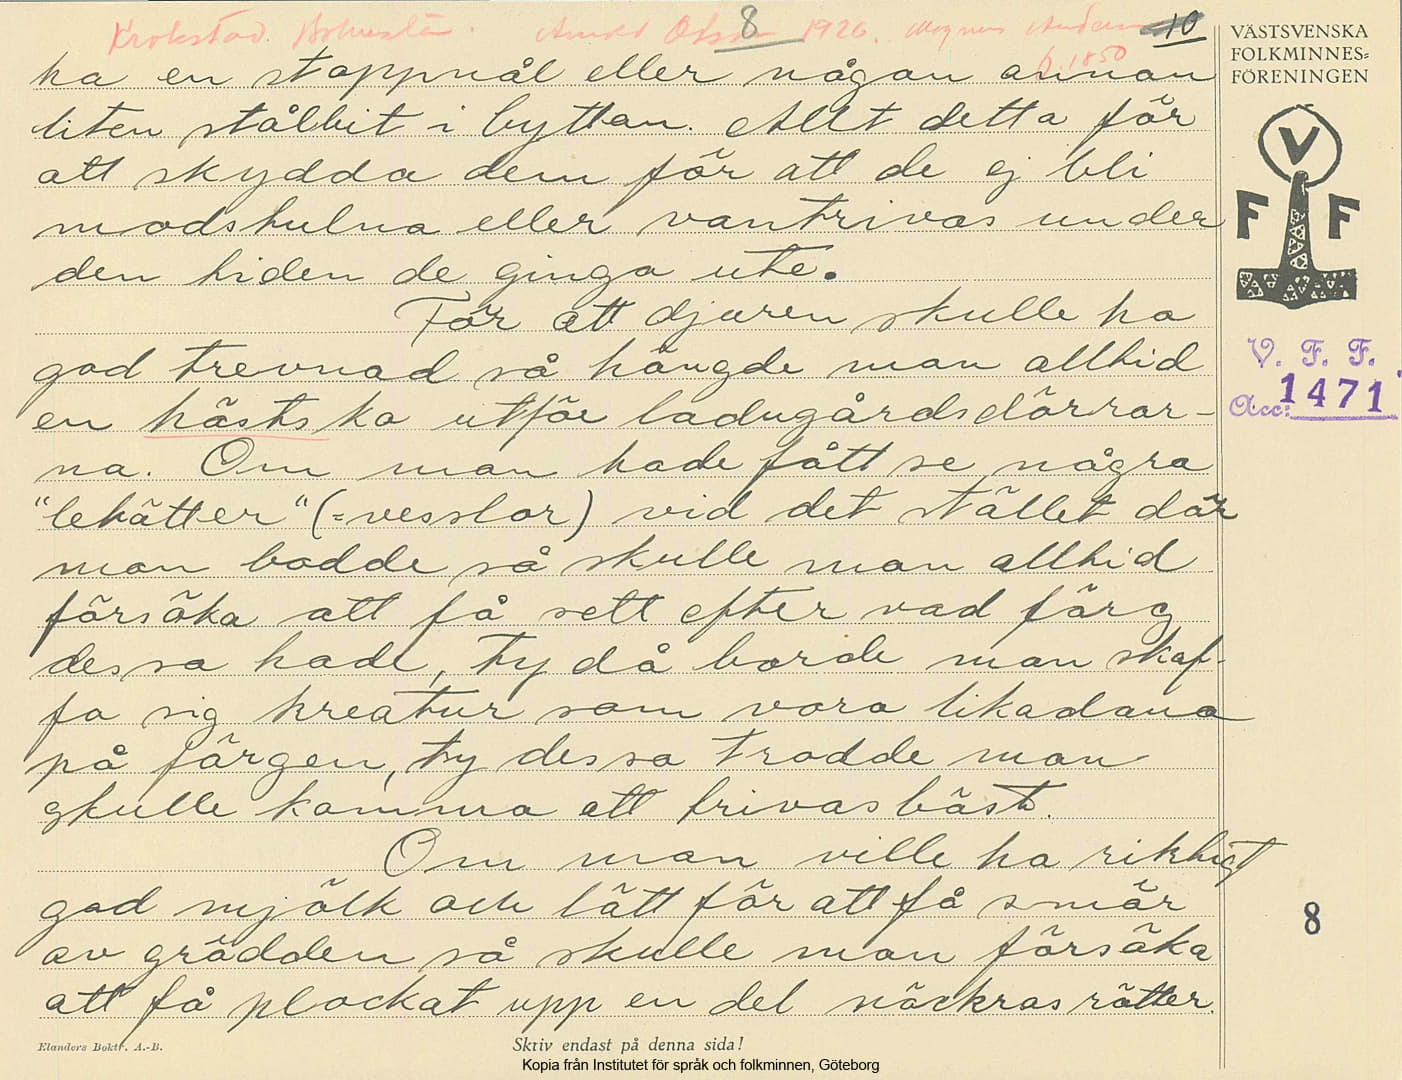 Krokstad. Bohuslän. Arvid Olsson 1926. Magnus Andersson
f. 1850
8
10
ha en stoppnål eller någon annan
liten stålbit i byttan. Allt detta för
att skydda dem för att de ej bli
modstulna eller vantrivas under
den tiden de gingo ute.
För att djuren skulle ha
god trevnad så hängde man alltid
en hästsko utför ladugårdsdörrar-
na. Om man hade fått se några
"lekätter" (=vesslor) vid det stället där
man bodde så skulle man alltid
försöka att få sett efter vad färg
dessa hade, ty då borde man skaf-
fa sig kreatur som voro likadana
på färgen, ty dessa trodde man
skulle komma att trivas bäst.
Om man ville ha riktigt
god mjölk och lätt för att få smör
av grädden så skulle man försöka
att få plockat upp en del näckrosrötter.
VÄSTSVENSKA
FOLKMINNES=
FÖRENINGEN
V
F F
V. F. F.
Acc: 1471
8
Elanders Boktr. A.-B.
Skriv endast på denna sida!
Kopia från Institutet för språk och folkminnen, Göteborg